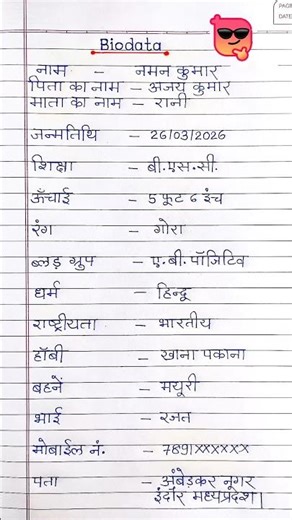 PAGE
DATE
Biodata
नाम – नमन कुमार
पिता का नाम – अजय कुमार
माता का नाम – रानी
जन्मतिथि – 26/03/2026
शिक्षा – बी.एस.सी.
ऊँचाई – 5 फूट 6 इंच
रंग – गोरा
ब्लड ग्रुप – ए.बी. पॉजिटिव
धर्म – हिन्दू
राष्ट्रीयता – भारतीय
हॉबी – खाना पकाना
बहनें – मयूरी
भाई – रजत
मोबाईल नं. – 7891xxxxxx
पता – अंबेड़कर नगर
इंदौर मध्यप्रदेश।